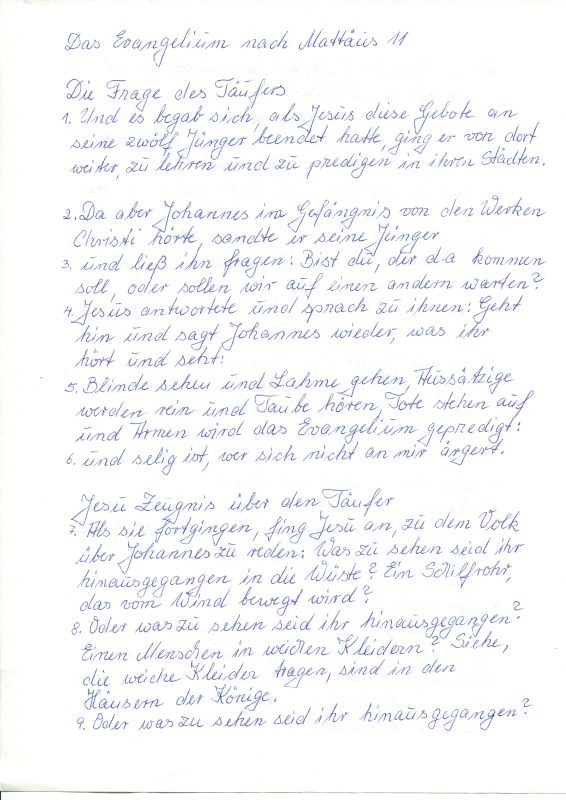 Das Evangelium nach Mattäus 11
Die Frage des Täufers
1. Und es begab sich, als Jesus diese Gebote an
seine zwölf Jünger beendet hatte, ging er von dort
weiter, zu lehren und zu predigen in ihren Städten.
2. Da aber Johannes im Gefängnis von den Werken
Christi hörte, sandte er seine Jünger
3. und ließ ihn fragen: Bist du, der da kommen
soll, oder sollen wir auf einen andern warten?
4. Jesus antwortete und sprach zu ihnen: Geht
hin und sagt Johannes wieder, was ihr
hört und seht:
5. Blinde sehen und Lahme gehen, Aussätzige
werden rein und Taube hören, Tote stehen auf
und Armen wird das Evangelium gepredigt:
6. und selig ist, wer sich nicht an mir ärgert.
Jesu Zeugnis über den Täufer
7. Als sie fortgingen, fing Jesu an, zu dem Volk
über Johannes zu reden: Was zu sehen seid ihr
hinausgegangen in die Wüste? Ein Schilfrohr,
das vom Wind bewegt wird?
8. Oder was zu sehen seid ihr hinausgegangen?
Einen Menschen in weichen Kleidern? Siehe,
die weiche Kleider tragen, sind in den
Häusern der Könige.
9. Oder was zu sehen seid ihr hinausgegangen?